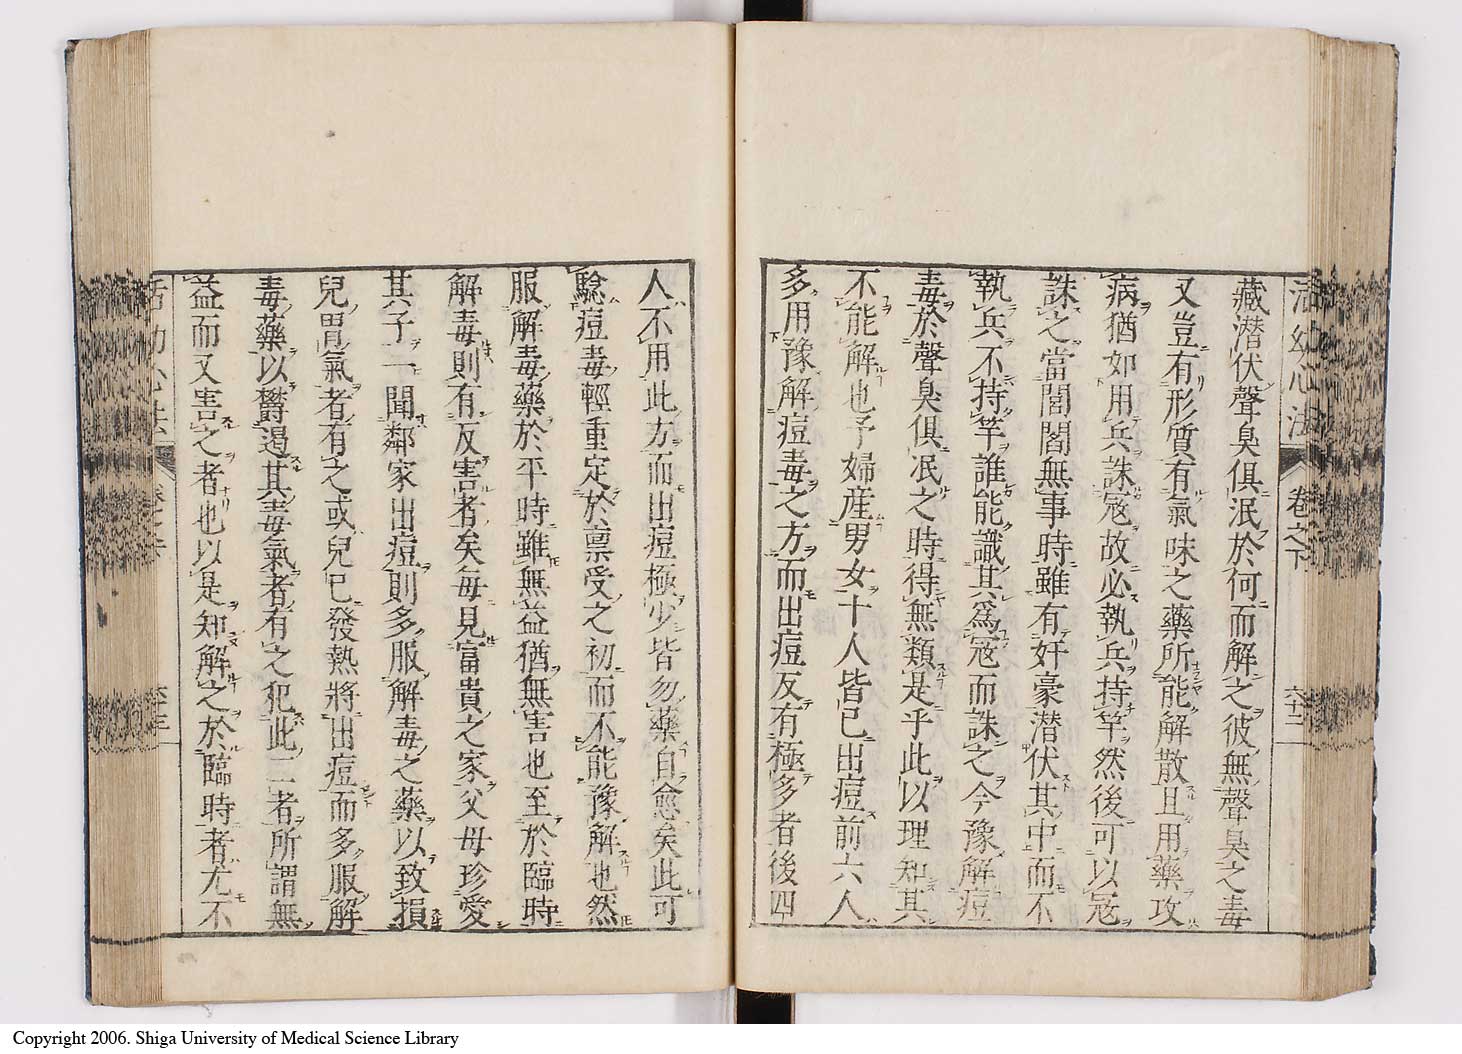 活幼心法 卷之下 六十二
藏潜伏聲臭俱泯於何而解之彼無聲臭之毒
又豈有形質有氣味之藥所能解散且用藥攻
病猶如用兵誅寇故必執兵持竿然後可以寇
誅之當閭閻無事時雖有奸豪潜伏其中而不
執兵不持竿誰能識其爲寇而誅之今豫解痘
毒於聲臭俱泯之時得無類是乎此以理知其
不能解也予婦産男女十人皆已出痘前六人
多用豫解痘毒之方而出痘反有極多者後四
人不用此方而出痘極少皆勿藥自愈矣此可
驗痘毒輕重定於禀受之初而不能豫解也然
服解毒藥於平時雖無益猶無害也至於臨時
解毒則有反害者矣每見富貴之家父母珍愛
其子一聞鄰家出痘則多服解毒之藥以致損
兒胃氣者有之或兒已發熱將出痘而多服解
毒藥以欝遏其毒氣者有之犯此二者所謂無
益而又害之者也以是知解之於臨時者尤不
Copyright 2006. Shiga University of Medical Science Library